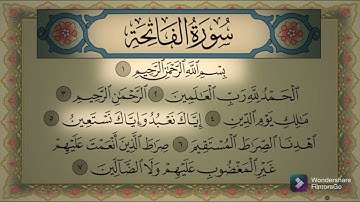 سُورَةُ الفَاتِحَةِ
بِسْمِ اللَّهِ الرَّحْمَٰنِ الرَّحِيمِ ١
الْحَمْدُ لِلَّهِ رَبِّ الْعَالَمِينَ ٢ الرَّحْمَٰنِ الرَّحِيمِ ٣
مَالِكِ يَوْمِ الدِّينِ ٤ إِيَّاكَ نَعْبُدُ وَإِيَّاكَ نَسْتَعِينُ ٥
اهْدِنَا الصِّرَاطَ الْمُسْتَقِيمَ ٦ صِرَاطَ الَّذِينَ أَنْعَمْتَ عَلَيْهِمْ
غَيْرِ الْمَغْضُوبِ عَلَيْهِمْ وَلَا الضَّالِّينَ ٧
Wondershare
FilmoraGo